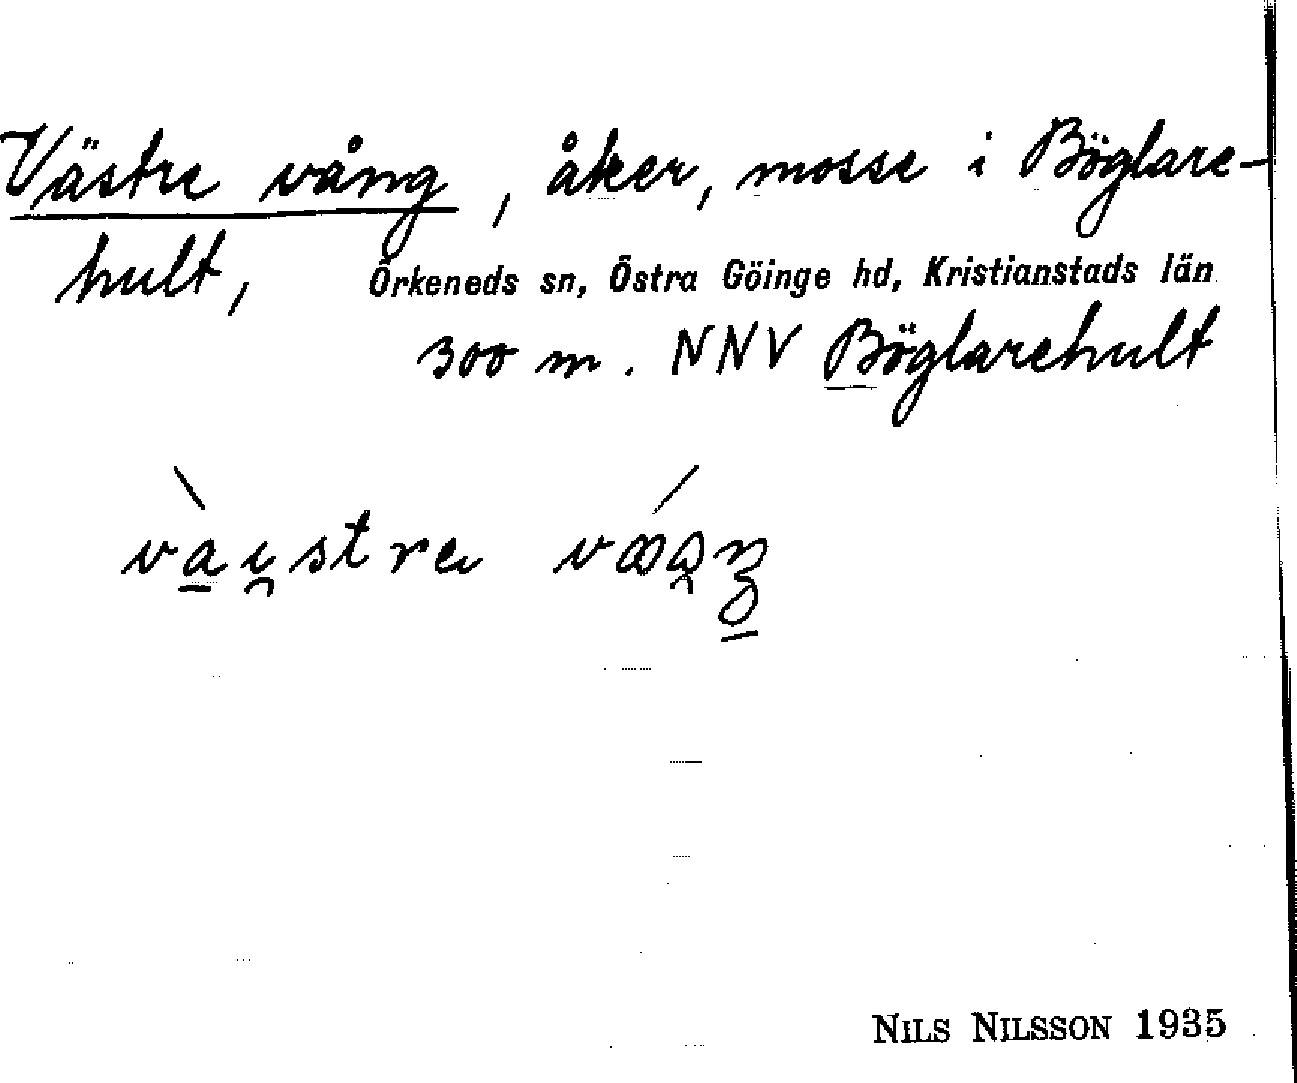 Västre vång, åker, mosse i Böglare-
hult, Örkeneds sn, Östra Göinge hd, Kristianstads län
300 m. NNV Böglarehult
NILS NILSSON 1935